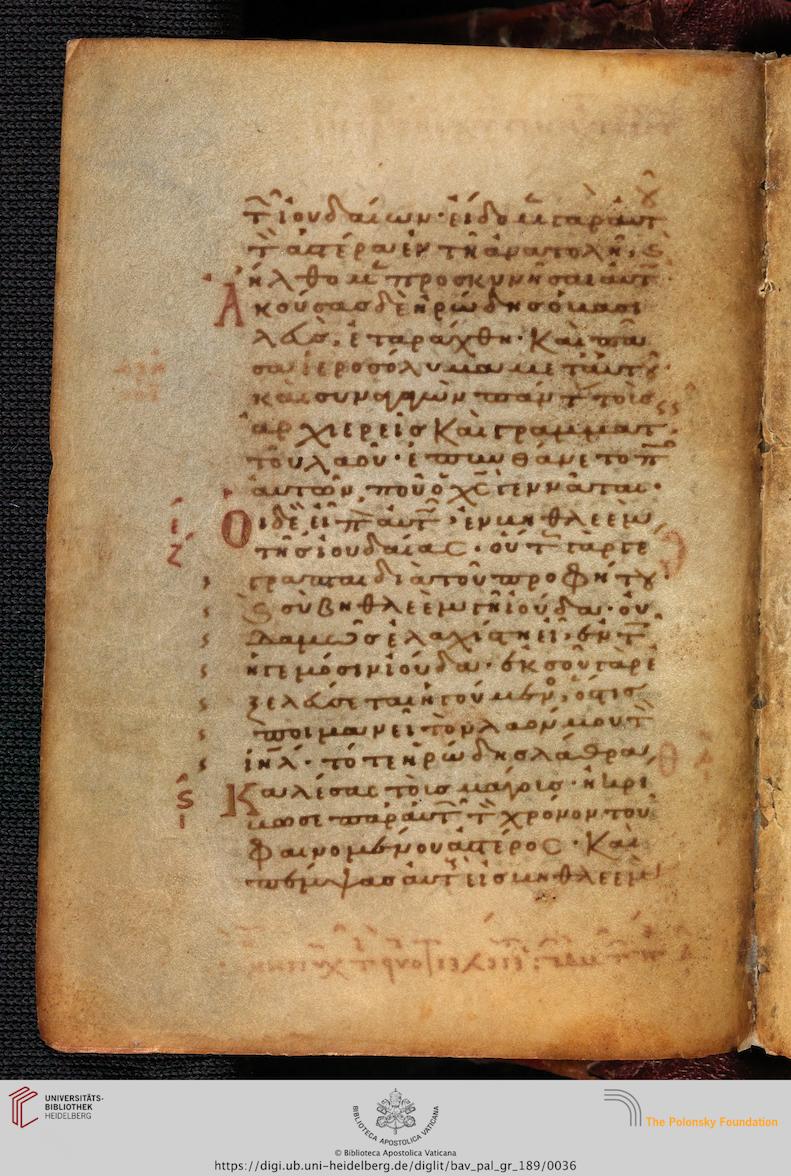 τ ἰουδαίων· εἴδομ γὰρ αὐτ
τ ἀστέρα ἐν τῆ ἀνατολῆ, ϗ
ἤλθομ προσκυνῆσαι αὐτ
Ἀκούσας δὲ ἡρώδης ὁ βασι
λεὺσ, ἐταράχθη· Καὶ πᾶ
σα ἱεροσόλυμα μετ αὐτοῦ·
καὶ συναγαγὼν πάντ τοὺσ
ἀρχιερεῖσ Καὶ γραμματ
τοῦ λαοῦ· ἐπυνθάνετο π
αὐτῶν, ποῦ ὁ χσ γεννᾶται·
Οἱ δὲ εἶπ αὐτ· ἐν βηθλεὲμ
τῆσ ἰουδαίασ· οὕτ γὰρ γέ
γραπται διὰ τοῦ προφήτου·
ϗ σὺ βηθλεὲμ γῆ ἰούδα· οὐ
δαμῶσ ἐλαχίστη εἶ· ἐν τ
ἡγεμόσιν ἰούδα· ἐκ σοῦ γὰρ ἐ
ξελεύσεται ἡγούμεν, ὅστισ
ποιμανεῖ τὸν λαόν μου τ
ιηλ· τότε ἡρώδησ λάθρα,
Καλέσασ τοὺσ μάγουσ· ἠκρί
βωσε παρ αὐτ τ χρόνον τοῦ
φαινομένου ἀστέροσ· Καὶ
πέμψασ αὐτ εἰσ βηθλεὲμ
UNIVERSITÄTS-
BIBLIOTHEK
HEIDELBERG
BIBLIOTHECA APOSTOLICA VATICANA
The Polonsky Foundation
© Biblioteca Apostolica Vaticana
https://digi.ub.uni-heidelberg.de/diglit/bav_pal_gr_189/0036